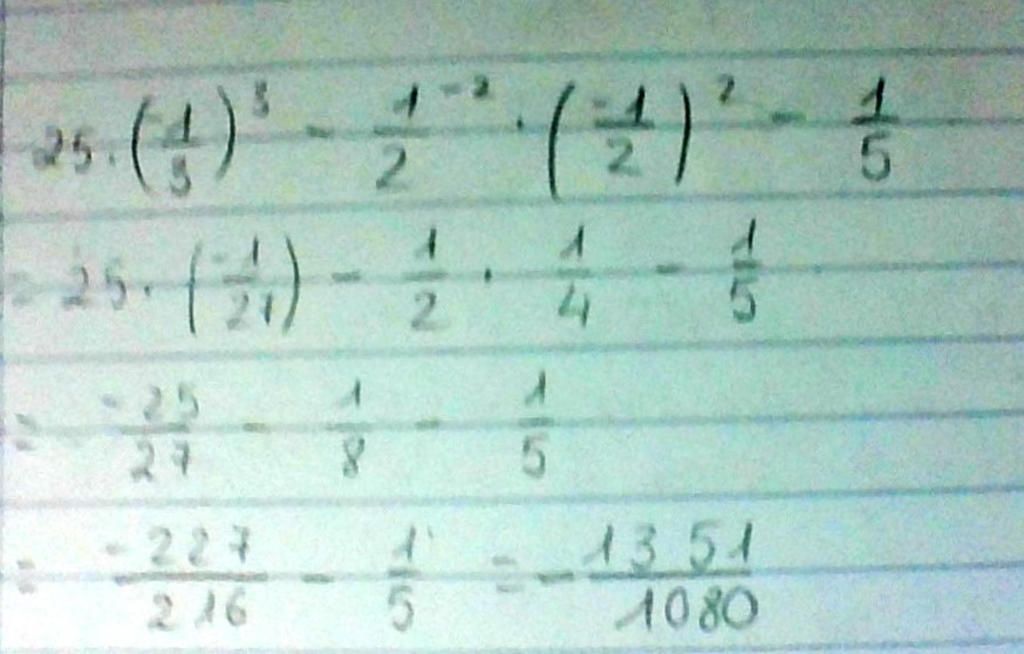 25 · (-1/3)³ - 1⁻²/2 · (-1/2)² - 1/5
= 25 · (-1/27) - 1/2 · 1/4 - 1/5
= -25/27 - 1/8 - 1/5
= -227/216 - 1/5 = - 1351/1080